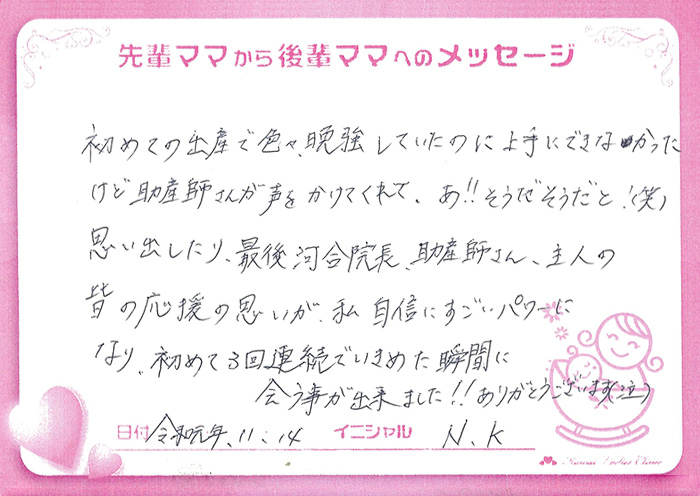 先輩ママから後輩ママへのメッセージ
初めての出産で色々、晩強していたのに上手にできなかった
けど助産師さんが声をかけてくれて、あ!!そうだそうだと!(笑)
思い出したり、最後河合院長、助産師さん、主人の
皆の応援の思いが、私自信にすごいパワーに
なり、初めて3回連続でいきめた瞬間に
会う事が出来ました!!ありがとうございます(泣)
日付 令和元年.11.14 イニシャル N.K
Kawai Ladies Clinic